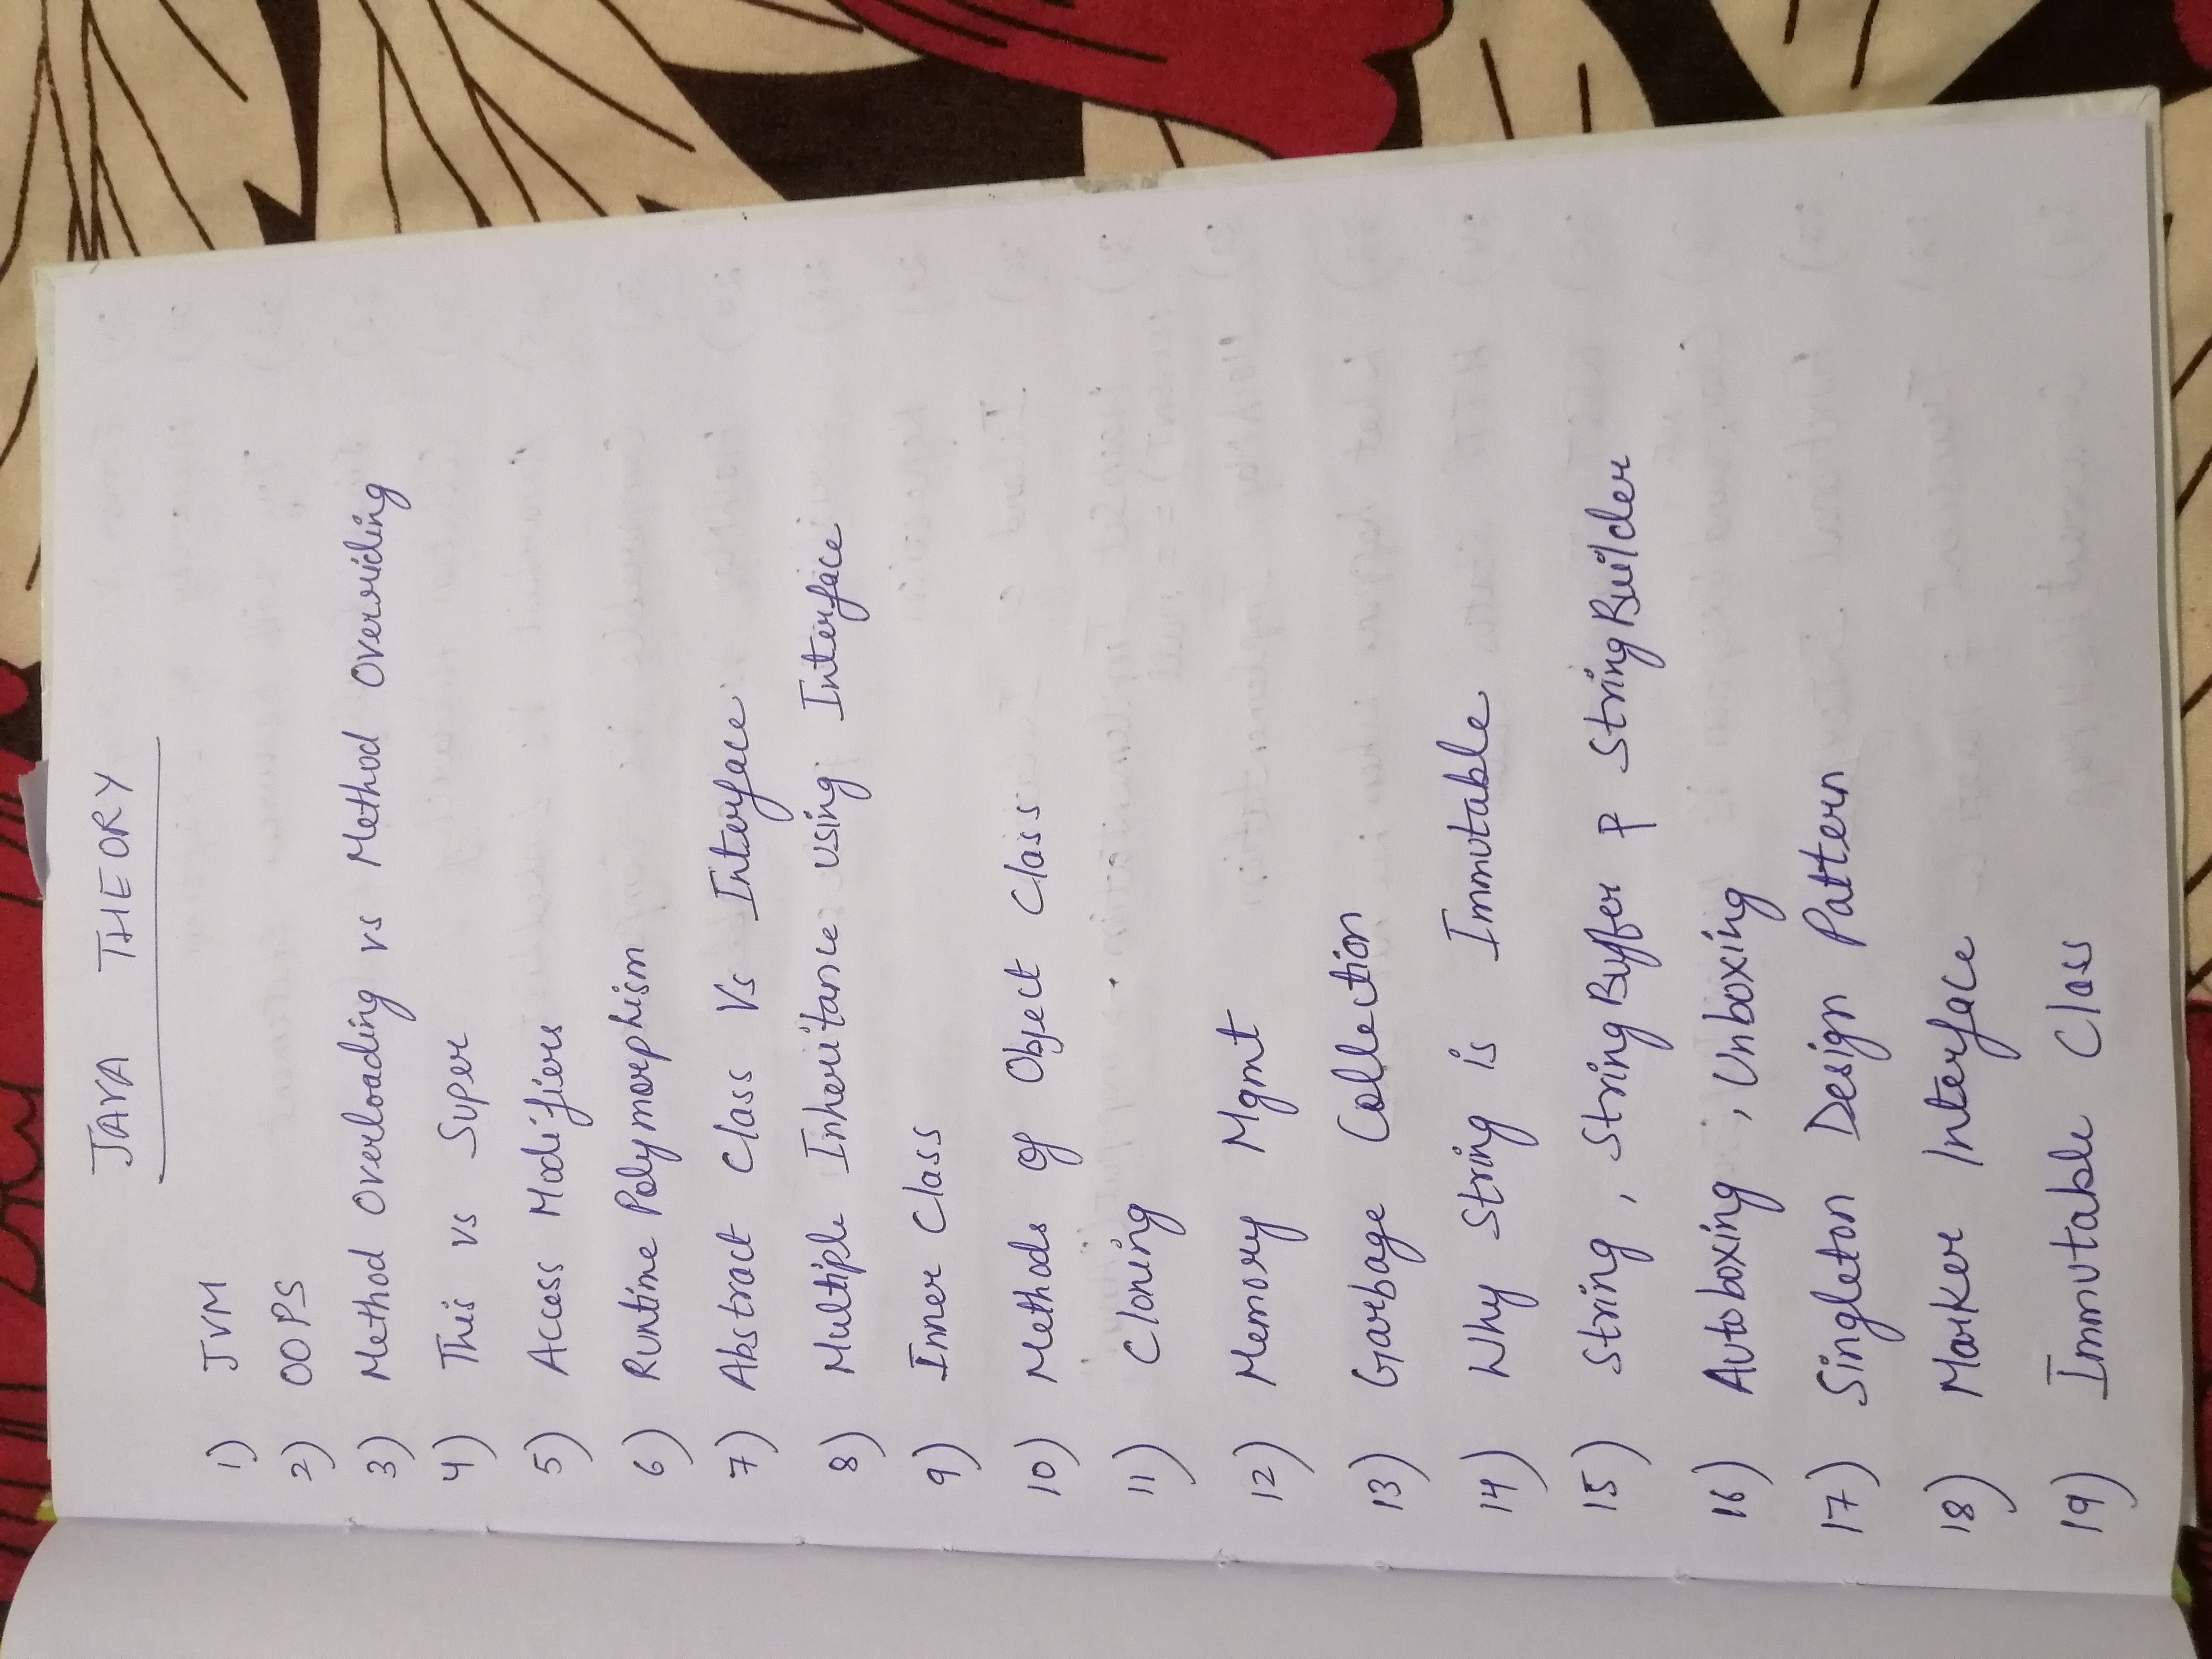 JAVA THEORY
1) JVM
2) OOPS
3) Method Overloading vs Method Overriding
4) This vs Super
5) Access Modifiers
6) Runtime Polymorphism
7) Abstract Class Vs Interface
8) Multiple Inheritance using Interface
9) Inner Class
10) Methods of Object Class
11) Cloning
12) Memory Mgmt
13) Garbage Collection
14) Why String is Immutable
15) String, StringBuffer & StringBuilder
16) Autoboxing, Unboxing
17) Singleton Design Pattern
18) Marker Interface
19) Immutable Class